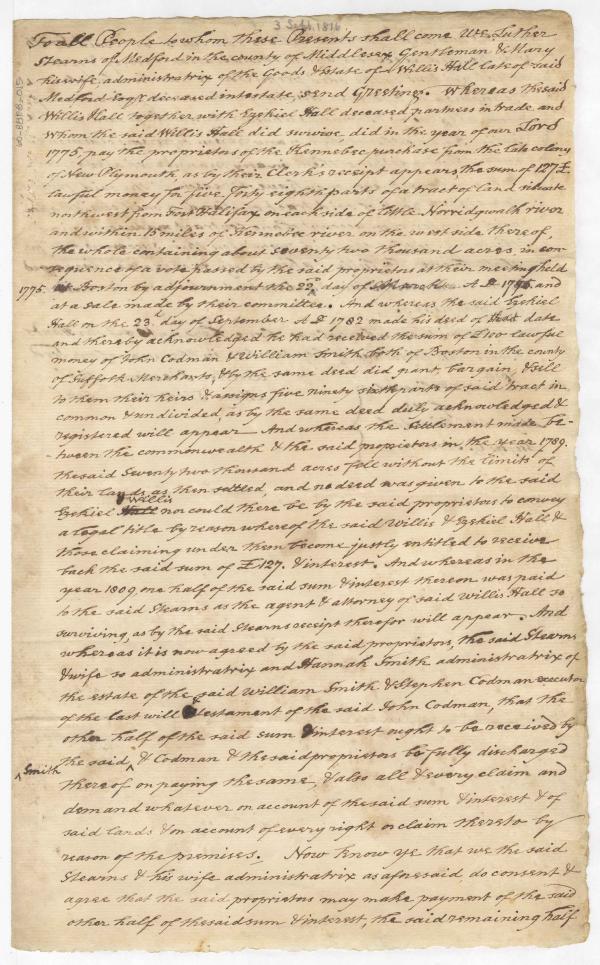 3 Sept. 1816
To all People to whom these Presents shall come We Luther
Stearns of Medford in the county of Middlesex Gentleman & Mary
his wife, administratrix of the Goods & Estate of Willis Hall late of said
Medford Esqr. deceased intestate, send Greeting. Whereas the said
Willis Hall together with Ezekiel Hall deceased partners in trade, and
whom the said Willis Hall did survive did in the year of our Lord
1775, pay the proprietors of the Kennebec purchase from the late colony
of New Plymouth, as by their Clerks receipt appears, the sum of 127£
lawful money for five, forty eighth parts of a tract of land situate
northwest from Fort Halifax on each side of little Norridgwalk river
and within 15 miles of Kennebec river on the west side thereof,
the whole containing about seventy two thousand acres, in con-
sequence of a vote passed by the said proprietors at their meeting held
1775. at Boston by adjournment the 22d day of March A D 1775 and
at a sale made by their committee. And whereas the said Ezekiel
Hall on the 23d day of September A D 1782 made his deed of that date
and thereby acknowledged he had received the sum of £100 lawful
money of John Codman & William Smith, both of Boston in the county
of Suffolk Merchants, & by the same deed did grant, bargain, & sell
to them their heirs & assigns five ninety sixth parts of said tract in
common & undivided, as by the same deed duly acknowledged &
registered will appear. And whereas the Settlement made be-
-tween the commonwealth & the said proprietors in the year 1789.
the said Seventy two thousand acres fell without the limits of
their lands, as then settled, and no deed was given to the said
Willis
Ezekiel Hall nor could there be by the said proprietors to convey
a legal title by reason whereof the said Willis & Ezekiel Hall &
those claiming under them become justly entitled to receive
back the said sum of £127. & interest. And whereas in the
year 1809, one half of the said sum & interest thereon was paid
to the said Stearns as the agent & attorney of said Willis Hall so
surviving, as by the said Stearns receipt therefor will appear. And
whereas it is now agreed by the said proprietors, the said Stearns
& wife so administratrix and Hannah Smith administratrix of
the estate of the said William Smith & Stephen Codman executor
of the last will & testament of the said John Codman, that the
other half of the said sum & interest ought to be received by
the said, & Codman & the said proprietors be fully discharged
Smith
thereof on paying the same, & also all & every claim and
demand whatever on account of the said sum & interest & of
said lands & on account of every right or claim thereto by
reason of the premises. Now know ye that we the said
Stearns & his wife administratrix as aforesaid do consent &
agree that the said proprietors may make payment of the said
other half of the said sum & interest, the said remaining half